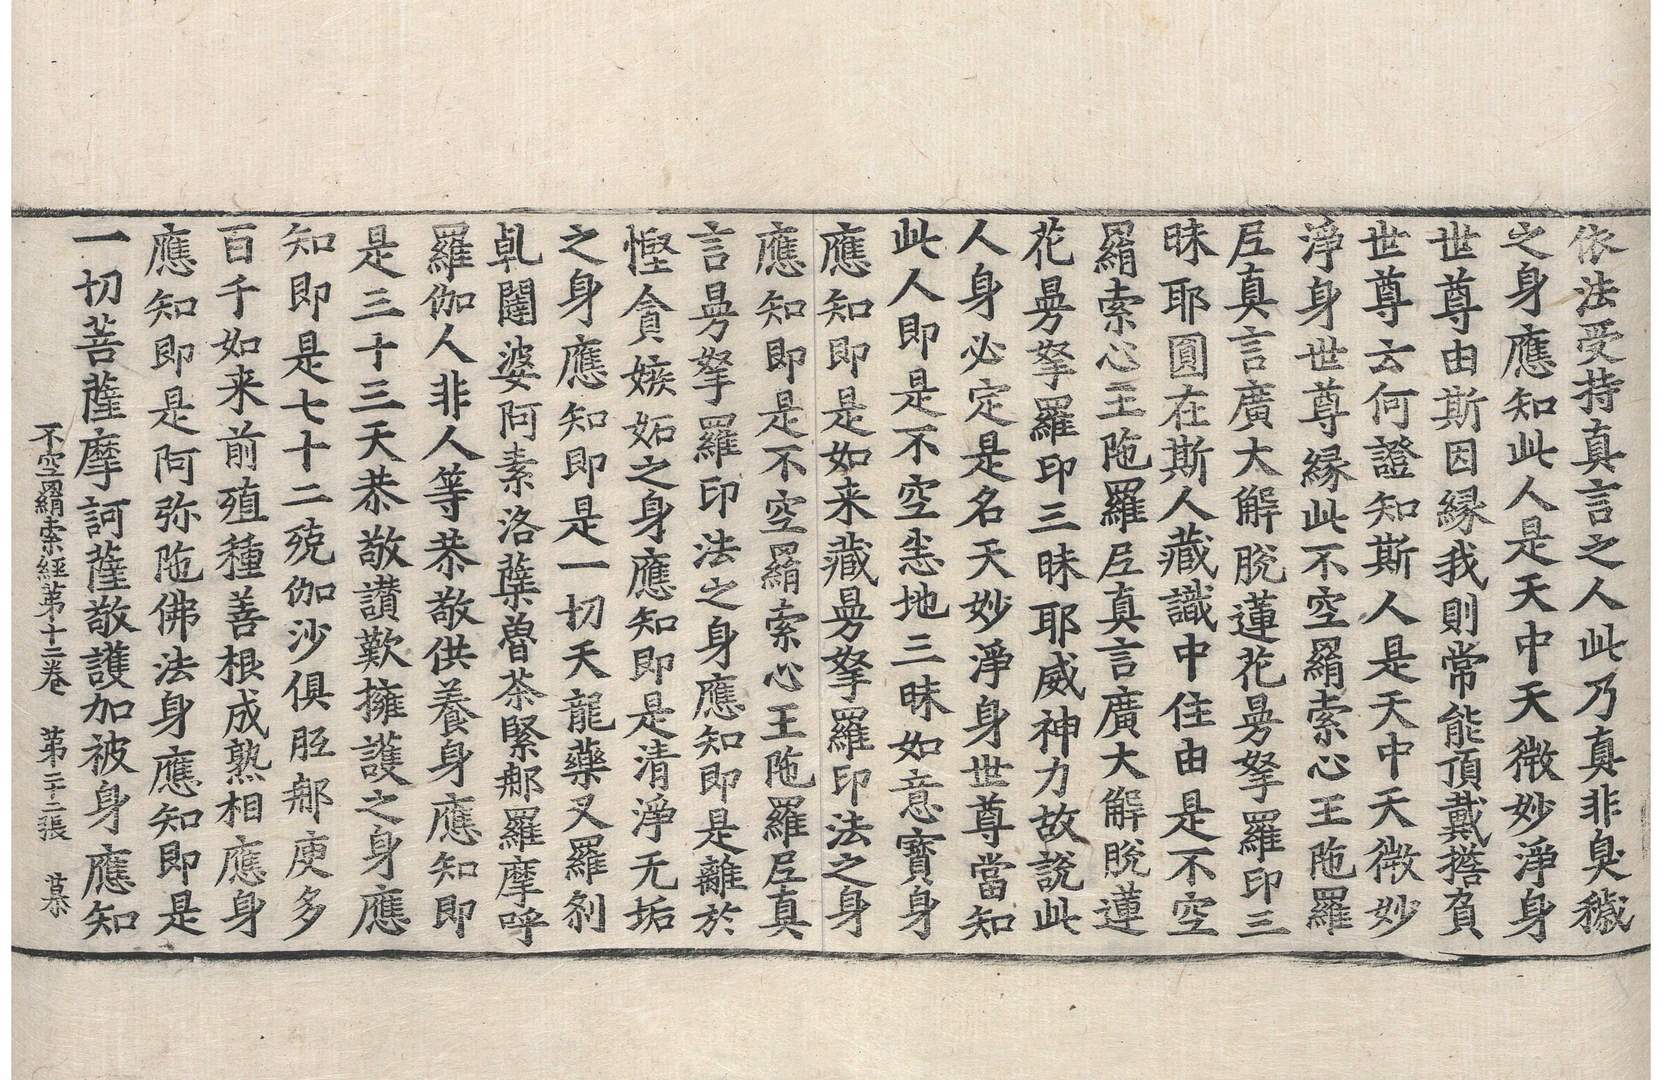 依法受持真言之人此乃真非臭穢
之身應知此人是天中天微妙淨身
世尊由斯因縁我則常能頂戴擔負
世尊云何證知斯人是天中天微妙
淨身世尊縁此不空羂索心王陁羅
𡰱真言廣大解脫蓮花曼拏羅印三
昧耶圓在斯人藏識中住由是不空
羂索心王陁羅𡰱真言廣大解脫蓮
花曼拏羅印三昧耶威神力故說此
人身必定是名天妙淨身世尊當知
此人即是不空悉地三昧如意寳身
應知即是如来藏曼拏羅印法之身
應知即是不空羂索心王陁羅𡰱真
言曼拏羅印法之身應知即是離於
慳貪嫉妬之身應知即是清淨无垢
之身應知即是一切天龍藥叉羅剎
乹闥婆阿素洛蘖魯荼緊𨚗羅摩呼
羅伽人非人等恭敬供養身應知即
是三十三天恭敬讃歎擁護之身應
知即是七十二殑伽沙俱胝𨚗庾多
百千如来前殖種善根成熟相應身
應知即是阿弥陁佛法身應知即是
一切菩薩摩訶薩敬護加被身應知
不空羂索經第十二卷　第二十二張　慕